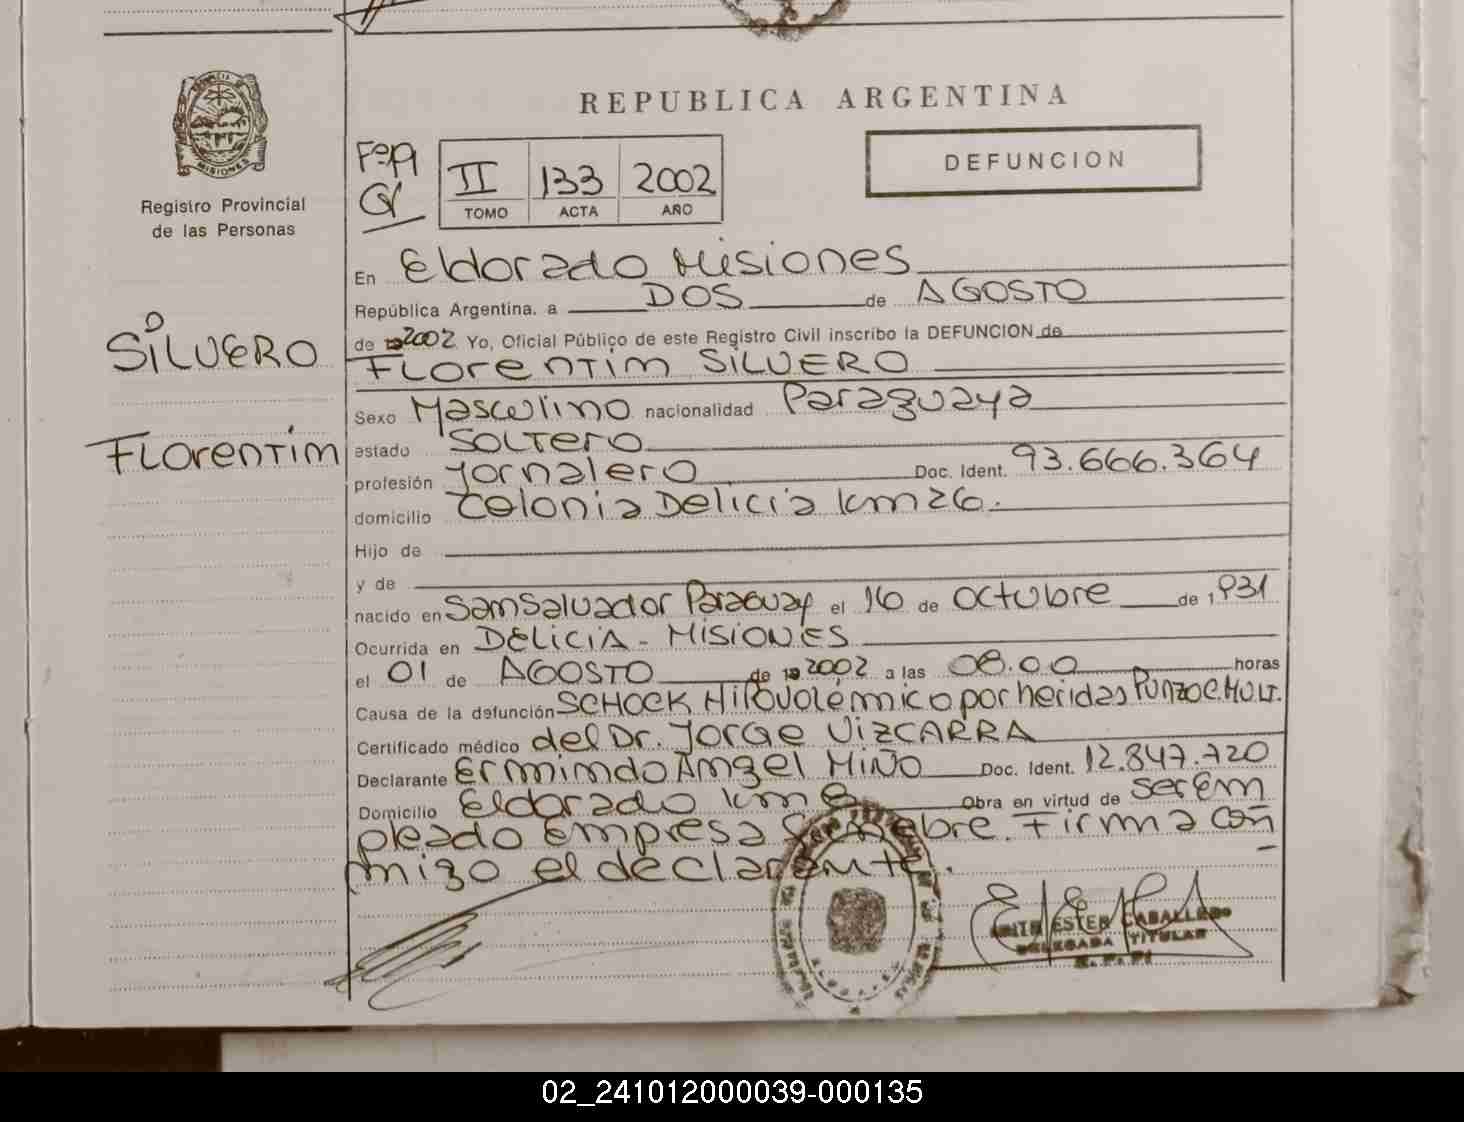 MISIONES
Registro Provincial
de las Personas
SILUERO
FLorentim
REPUBLICA ARGENTINA
DEFUNCION
II 133 2002
TOMO ACTA AÑO
En Eldorado Misiones
República Argentina, a DOS de AGOSTO
de 2002. Yo, Oficial Público de este Registro Civil inscribo la DEFUNCION de
FLorentim SILUERO
Sexo Masculino nacionalidad Paraguaya
estado SOLTERO
profesión Jornalero Doc. Ident. 93.666.364
domicilio Colonia Delicia Km 26.
Hijo de
y de
nacido en SamSalvador Paraguay el 16 de octubre de 1,931
Ocurrida en DELICIA - MISIONES
el 01 de AGOSTO de 2002 a las 08.00 horas
Causa de la defunción SCHOCK Hipovolémico por heridas PUNZO C. MULT.
Certificado médico del Dr. Jorge VIZCARRA
Declarante Ermimdo Amgel MIÑO Doc. Ident. 12.847.720
Domicilio Eldorado Km 8 Obra en virtud de ser Em
pleado empresa fumebre. Firma con
migo el declarante.
ESTER CABALLERO
DELEGADA TITULAR
R. P. P.
02_241012000039-000135